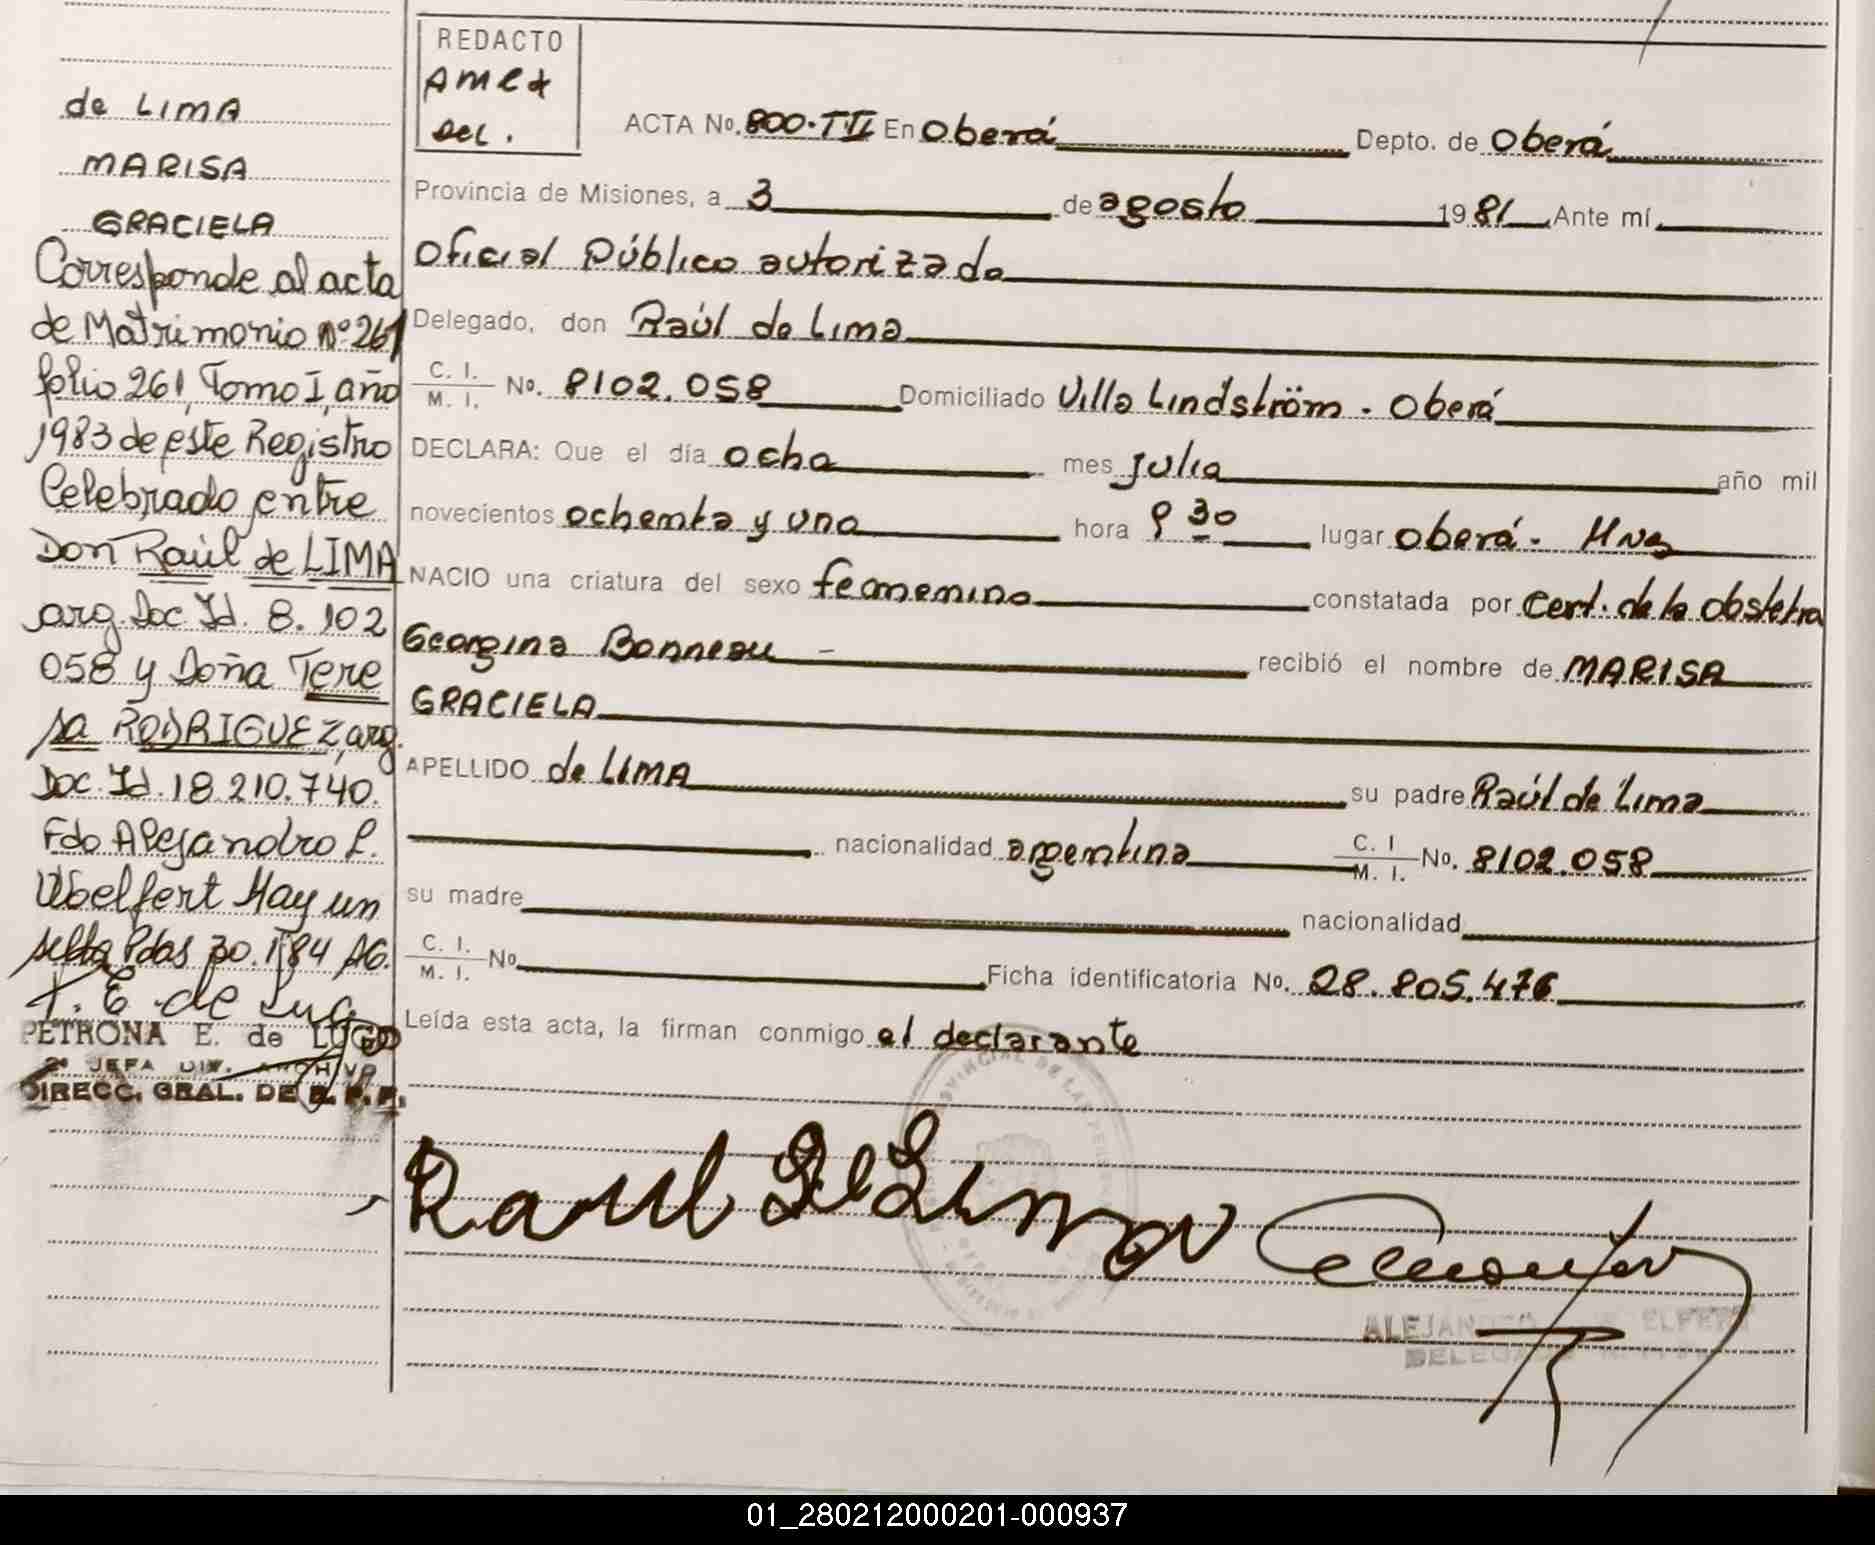 de LIMA
MARISA
GRACIELA
Corresponde al acta
de Matrimonio Nº 261
folio 261, Tomo I, año
1983 de este Registro
Celebrado entre
Don Raúl de LIMA
arg. Doc Id. 8.102
058 y Doña Tere
sa RODRIGUEZ, arg.
Doc. Id. 18.210.740.
Fdo Alejandro L.
Woelfert Hay un
sello Pdas 30.1.84 AG.
P. E. de Lugo
PETRONA E. de LUGO
2ª JEFA DIV. ARCHIVO
DIRECC. GRAL. DE R. P. P.
REDACTO
Del.
ACTA No. 800-T II En Oberá Depto. de Oberá
Provincia de Misiones, a 3 de agosto 19 81 Ante mí
Oficial Público autorizado
Delegado, don Raúl de Lima
C. I.
M. I. No. 8102.058 Domiciliado Villa Lindström - Oberá
DECLARA: Que el día ocho mes julio año mil
novecientos ochenta y uno hora 9 30 lugar Oberá - Mnes
NACIO una criatura del sexo femenino constatada por Cert. de la obstetra
Georgina Bonneau - recibió el nombre de MARISA
GRACIELA
APELLIDO de LIMA su padre Raúl de Lima
nacionalidad argentina C. I. M. I. No. 8102.058
su madre nacionalidad
C. I. M. I. No. Ficha identificatoria No. 28.805.476
Leída esta acta, la firman conmigo el declarante
Raul De Lima
ALEJANDRO WOELFERT
DELEGADO
01_280212000201-000937